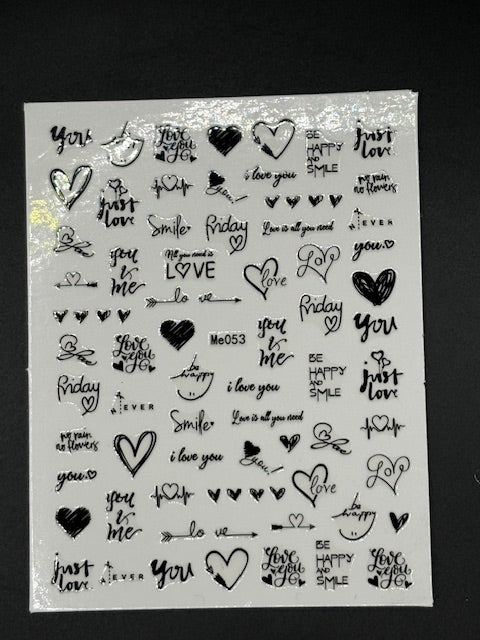 you
Love
you
BE
HAPPY
AND
SMILE
just
love
i love you
you!
no rain
no flowers
just
love
Smile
Friday
Love is all you need
4EVER
you
you
&
me
All you need is
LOVE
love
Love
lo ve
Friday
you
Love
you
Me053
you
&
me
be
happy
BE
HAPPY
AND
SMILE
just
love
Friday
4EVER
i love you
Smile
Love is all you need
no rain
no flowers
you
i love you
you!
love
Love
you
&
me
lo ve
be
happy
just
love
4EVER
you
Love
you
BE
HAPPY
AND
SMILE
Love
you